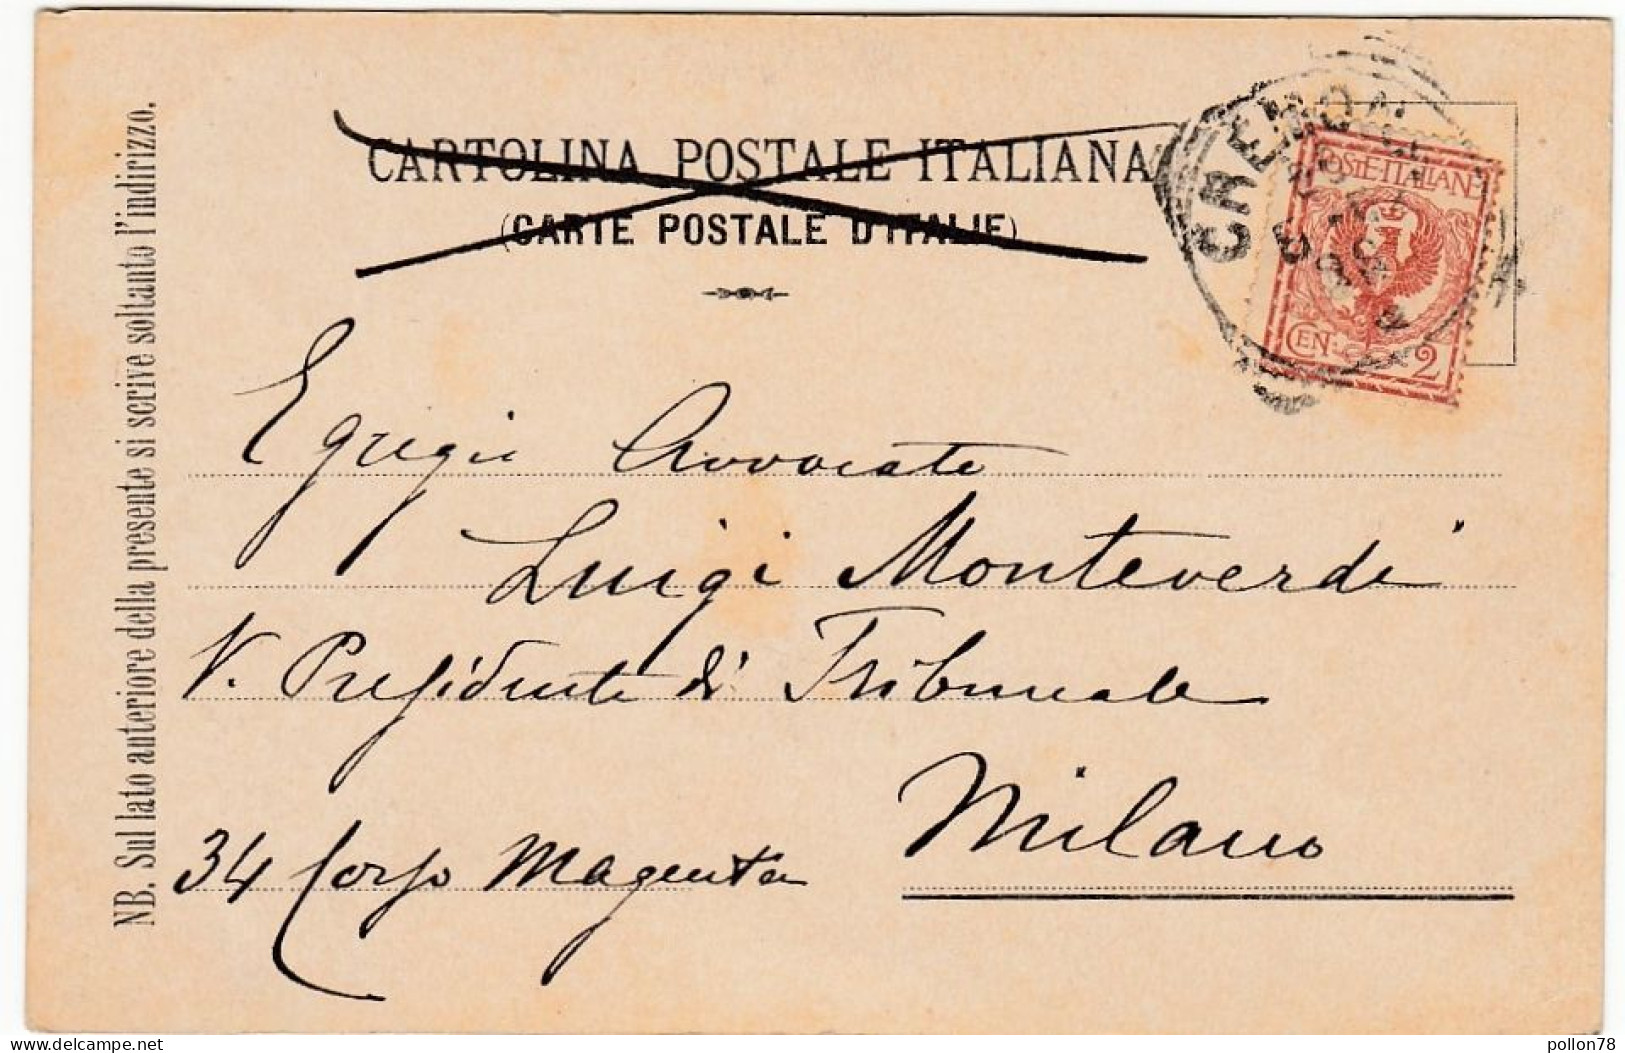 CARTOLINA POSTALE ITALIANA
(CARTE POSTALE D'ITALIE)
CREMONA
POSTE ITALIANE
CEN. 2
Egregio Avvocato
Luigi Monteverdi
V. Presidente di Tribunale
Milano
34 Corso Magenta
NB. Sul lato anteriore della presente si scrive soltanto l'indirizzo.
delcampe.net
pollon78